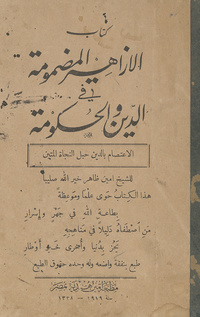 كتاب
الازاهير المضمومة
في
الدين والحكومة
الاعتصام بالدين حبل النجاة المتين
للشيخ امين ظاهر خير الله صليبا
هذا الكتاب حوى علما وموعظة
بطاعة الله في جهر وإسرار
من استطقاه دليلا في مناهجه
بدنيا وأخرى أوطار
طبع بنفقة واضعه وله وحده حقوق الطبع
سنة ١٩١٩ - ١٣٣٨